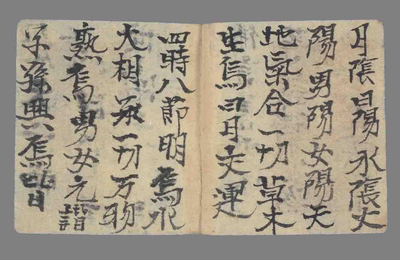 月陰日陽水陰火
陽男陽女陽天
地氣合一切草木
生焉日月交運
四時八節明焉水
火相承一切万物
熟焉男女允諧
子孫興焉皆